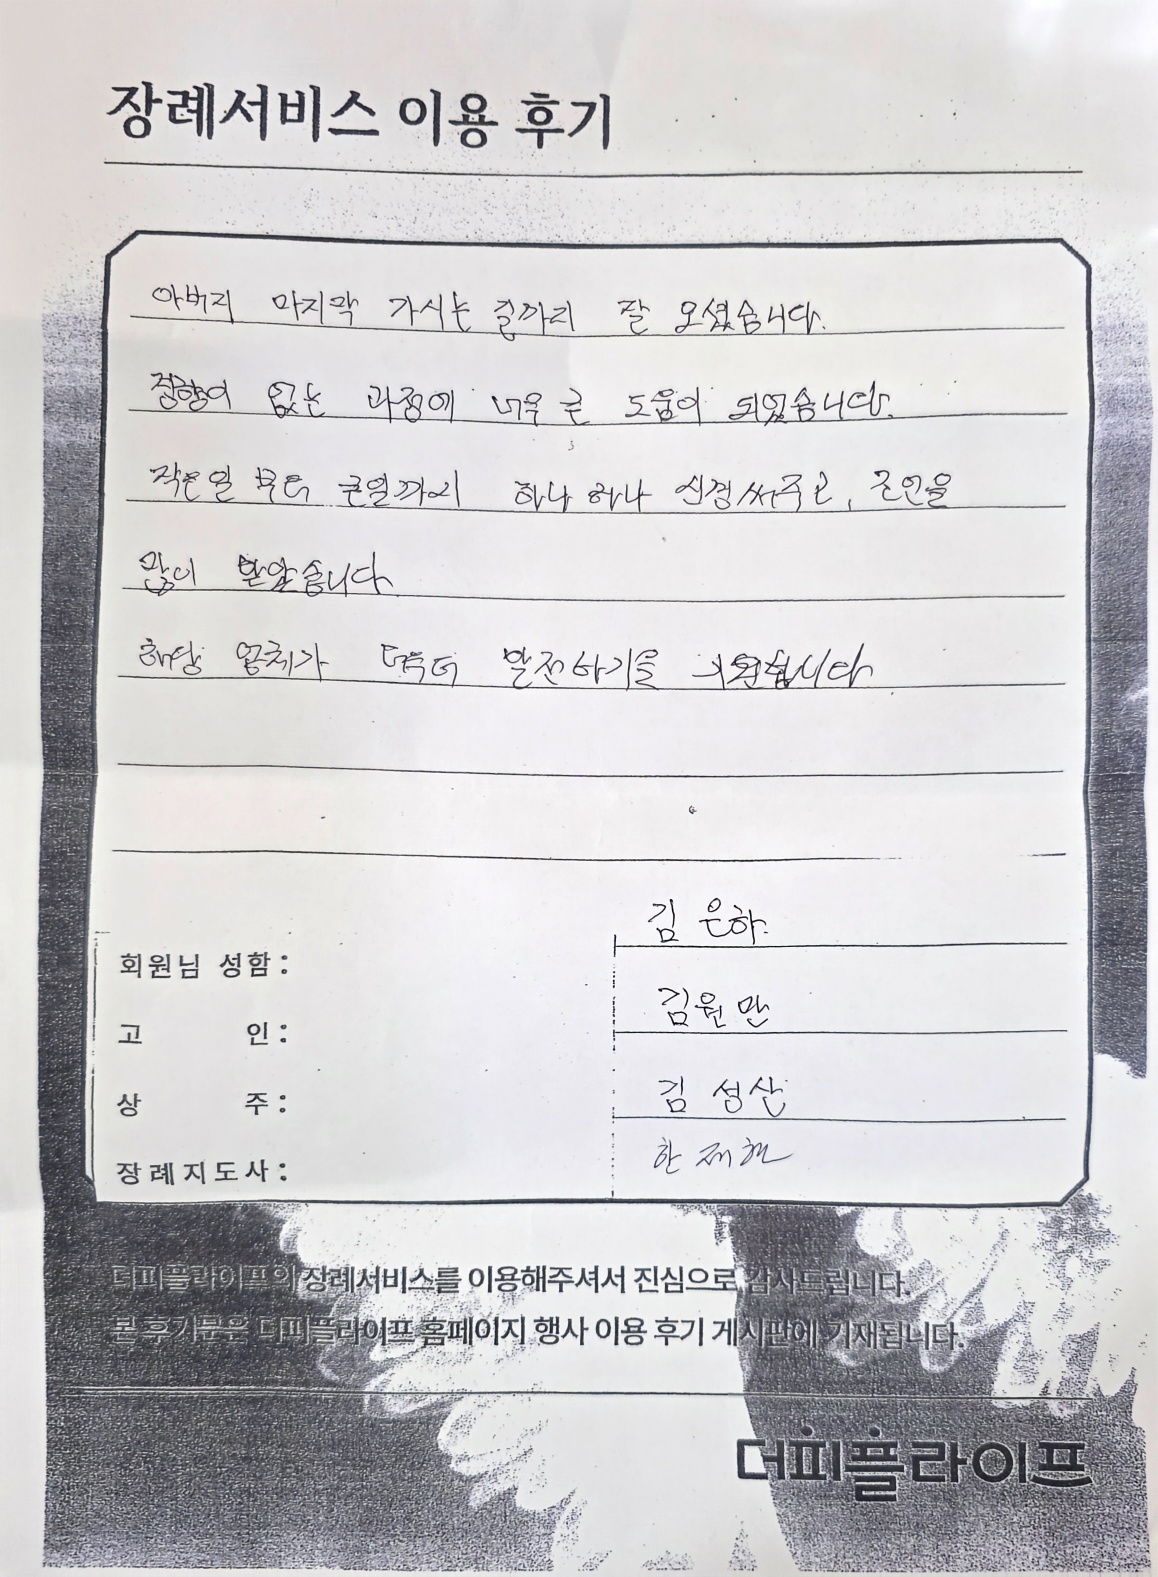 장례서비스 이용 후기
아버지 마지막 가시는 길까지 잘 모셨습니다.
경황이 없는 과정에 너무 큰 도움이 되었습니다.
작은일 부터 큰일까지 하나 하나 신경써주고, 조언을
많이 받았습니다
해당 업체가 더욱더 발전하기를 기원합니다
김 은하
회원님 성함:
김원만
고 인:
김 성산
상 주:
한재현
장례지도사:
더피플라이프의 장례서비스를 이용해주셔서 진심으로 감사드립니다.
본 후기문은 더피플라이프 홈페이지 행사 이용 후기 게시판에 기재됩니다.
더피플라이프